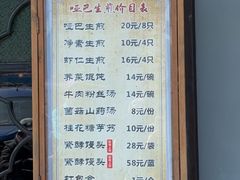 哑巴生煎价目表
哑巴生煎 20元/8只
净素生煎 10元/4只
虾仁生煎 16元/4只
荠菜馄饨 14元/碗
牛肉粉丝汤 14元/碗
菌菇山药汤 8元/份
桂花糖芋艿 10元/份
紧酵馒头 28元/袋
紧酵馒头 58元/盒
打包盒 1元/个